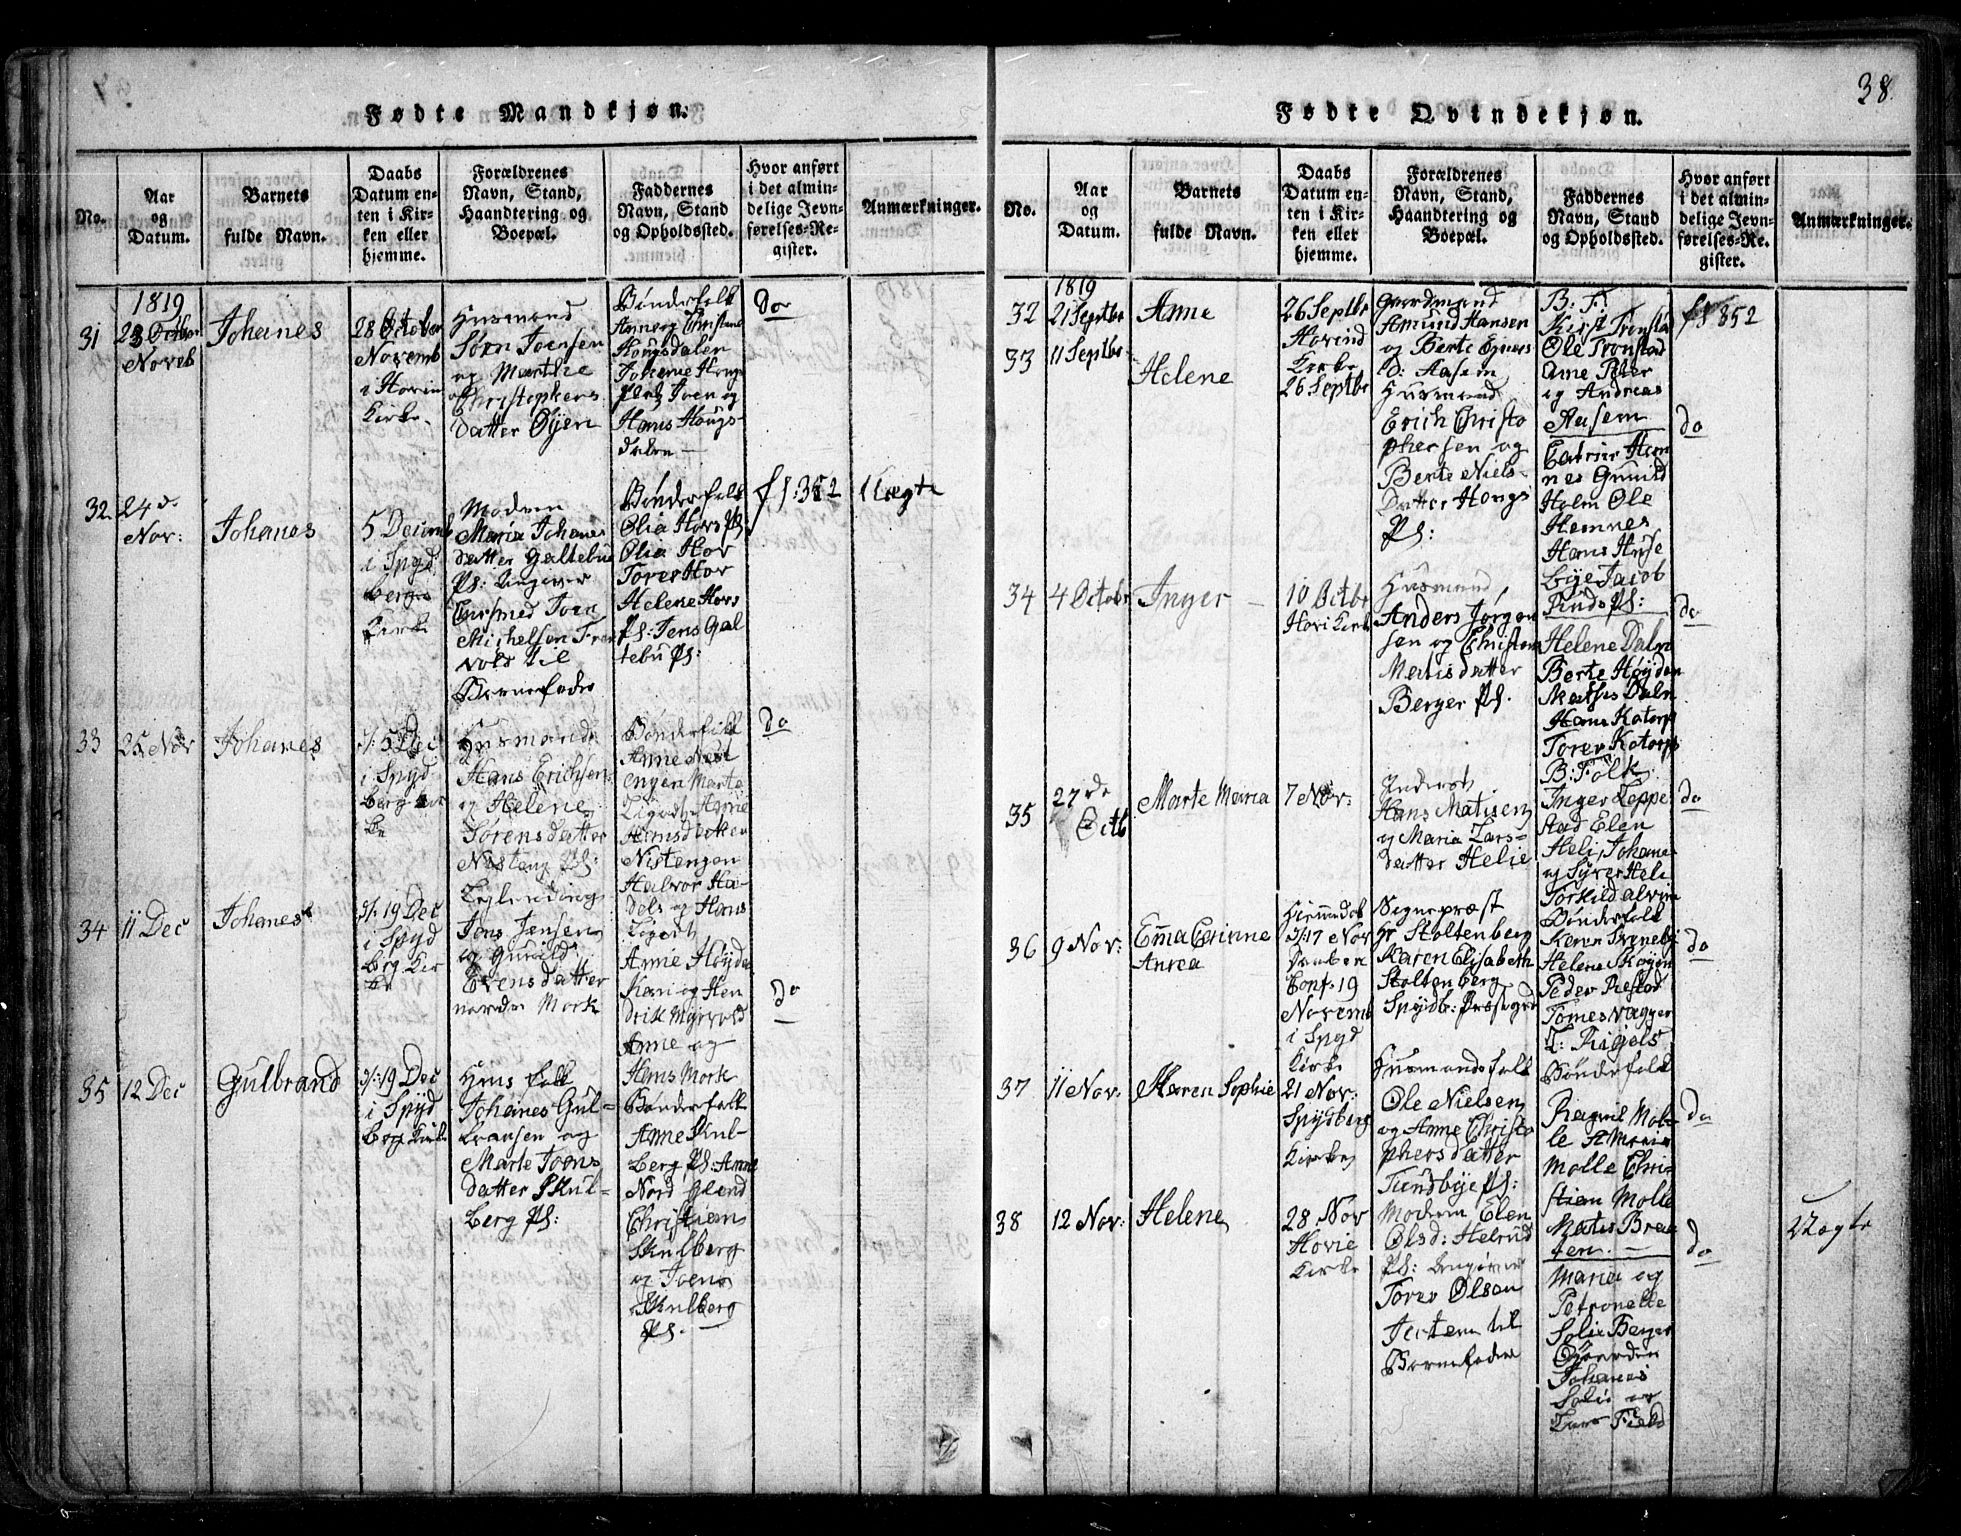 38.
Fødte Mandkjøn.
No.
Aar
og
Datum.
Barnets
fulde Navn.
Daabs
Datum en-
ten i Kir-
ken eller
hjemme.
Forældrenes
Navn, Stand,
Haandtering og
Boepæl.
Faddernes
Navn, Stand
og Opholdssted.
Hvor anført
i det almin-
delige Jevn-
førelses-Re-
gister.
Anmærkninger.
1819
31
Noveb
Johanes
28 October
Novemb
i Hovin
Kirke.
Husmand
Sørn Joensen
og Marthe
Christophers
datter Øyen
Bønderfolk
Anne og Christiane
Hougsdalen
Johanne Houg
Joen og
Hans Hougs-
dalen
do
32
24 d.
Nov:
Johanes
5 Decemb
i Spyd
bergs
Kirke
Modren
Maria Johanes
datter Galtebu
Ps: Angiver
Joen
Michelsen
til
Barnefader
Bønderfolk
Olia Hovs Ps:
Olia Hov
Torer Hov
Helene Hovs
Ps: Jens Gal
tebu Ps:
f S: 352
1 Uægte
33
25 Nov
Johanes
5 Dec
i Spyd
berg Kir
ke
Husmand
Hans Erichsen
og Helene
Sørensdatter
Nesteng Ps:
Bønderfolk
Anne Nest
engen Marte
Hansdatter
Nistengen
Halvor Ha-
dels og Hans
do
34
11 Dec
Johanes
19 Dec
i Spyd
berg Kir
ke
Jons Jensen
og Gunild
Evensdatter
nordre Mork
Anne Høyden
Kari og Hen
drik Myrvold
Anne og
Hans Mork
do
35
12 Dec
Gulbrand
19 Dec
i Spyd
berg Kirke
Huus folk
Johanes Gul-
bransen og
Marte Joens
datter Skul-
berg Ps:
Bønderfolk
Anne Skul-
berg Ps: Anne
Nord Glend
Christian
Skulberg
og Joens
Skulberg
Ps.
Fødte Qvindekjøn.
No.
Aar
og
Datum.
Barnets
fulde Navn.
Daabs
Datum en-
ten i Kir-
ken eller
hjemme.
Forældrenes
Navn, Stand,
Haandtering og
Boepæl.
Faddernes
Navn, Stand
og Opholdssted.
Hvor anført
i det almin-
delige Jevn-
førelses-Re-
gister.
Anmærkninger.
1819
32
21 Septbr
Anne
26 Septbr
Hovind
Kirke
Gaardmand
Amund Hansen
og Berte Ejners
d: Aasem
B: F:
Kirst Tronsta
Ole Tronstad
Ane Peter
og Andreas
Aasem
f S 352
33
11 Septbr
Helene
26 Septbr
Husmand
Erich Christo
phersen og
Berte Niels-
Datter Hougs
Ps:
Catrine Hem
nes Gunild
Holm Ole
Hemnes
Hans Huse
bye Jacob
Finds Ps:
do
34
4 Octobr
Inger
10 Octbr
Hovi Kirke
Husmand,
Anders Jørgen
sen og Christen
Matisdatter
Berger Ps.
Helene Dalen
Berte Høyden
Mathis Dalen
Hans Katorp
Torer Katorp
do
35
27 de
Octb
Marte Maria
7 Nov:
Inderst
Hans Matisen
og Maria Lars-
datter Helie
B: Folk
Inger Teppe
stad Elen
Heli, Johane
og Syver Heli
Torkild
do
36
9 Nov:
Emma Corinne
Anrea
Hiemmedøbt
17 Nov
Conf: 19
Novemb
i Spyd
Kirke
Sognepræst
Hr Stoltenberg
Karen Elisabeth
Stoltenberg
Spydb: Præstegrd
Bønderfolk
Karen Sveneby
Helene Skøyen
Peder Prestad
Tomes Vagger
L: Rigels
do
37
11 Nov:
Karen Sophie
21 Nov:
Spydberg
Kirke
Husmandsfolk
Ole Nielsen
og Anne Christo
phersdatter
Tundbye Ps:
Bønderfolk
Ragnil Mol-
le A Maria
Molle Chri-
stian Molle
Matis Bra
ten.
do
38
12 Nov:
Helene
28 Nov
Hovie
Kirke
Modren Elen
Olsd: Helrud
Ps: Angiver
Torer Olsen
til
Barnefader
Maria og
Petronelle
Solie Berger
Johanes
Solie og
Lars
do
2 Uægte